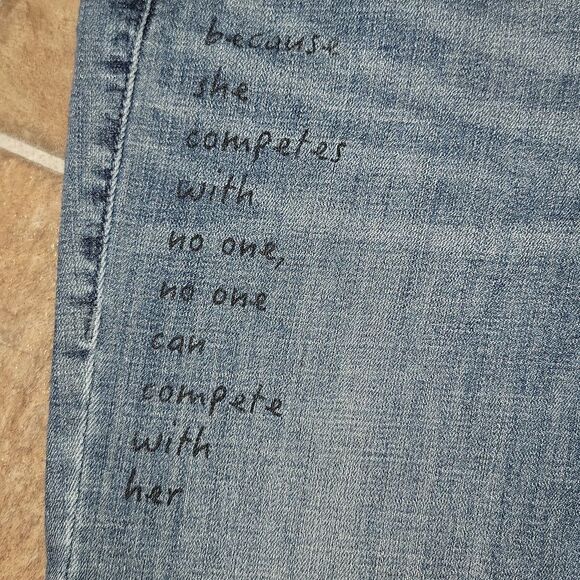 because
she
competes
with
no one,
no one
can
compete
with
her